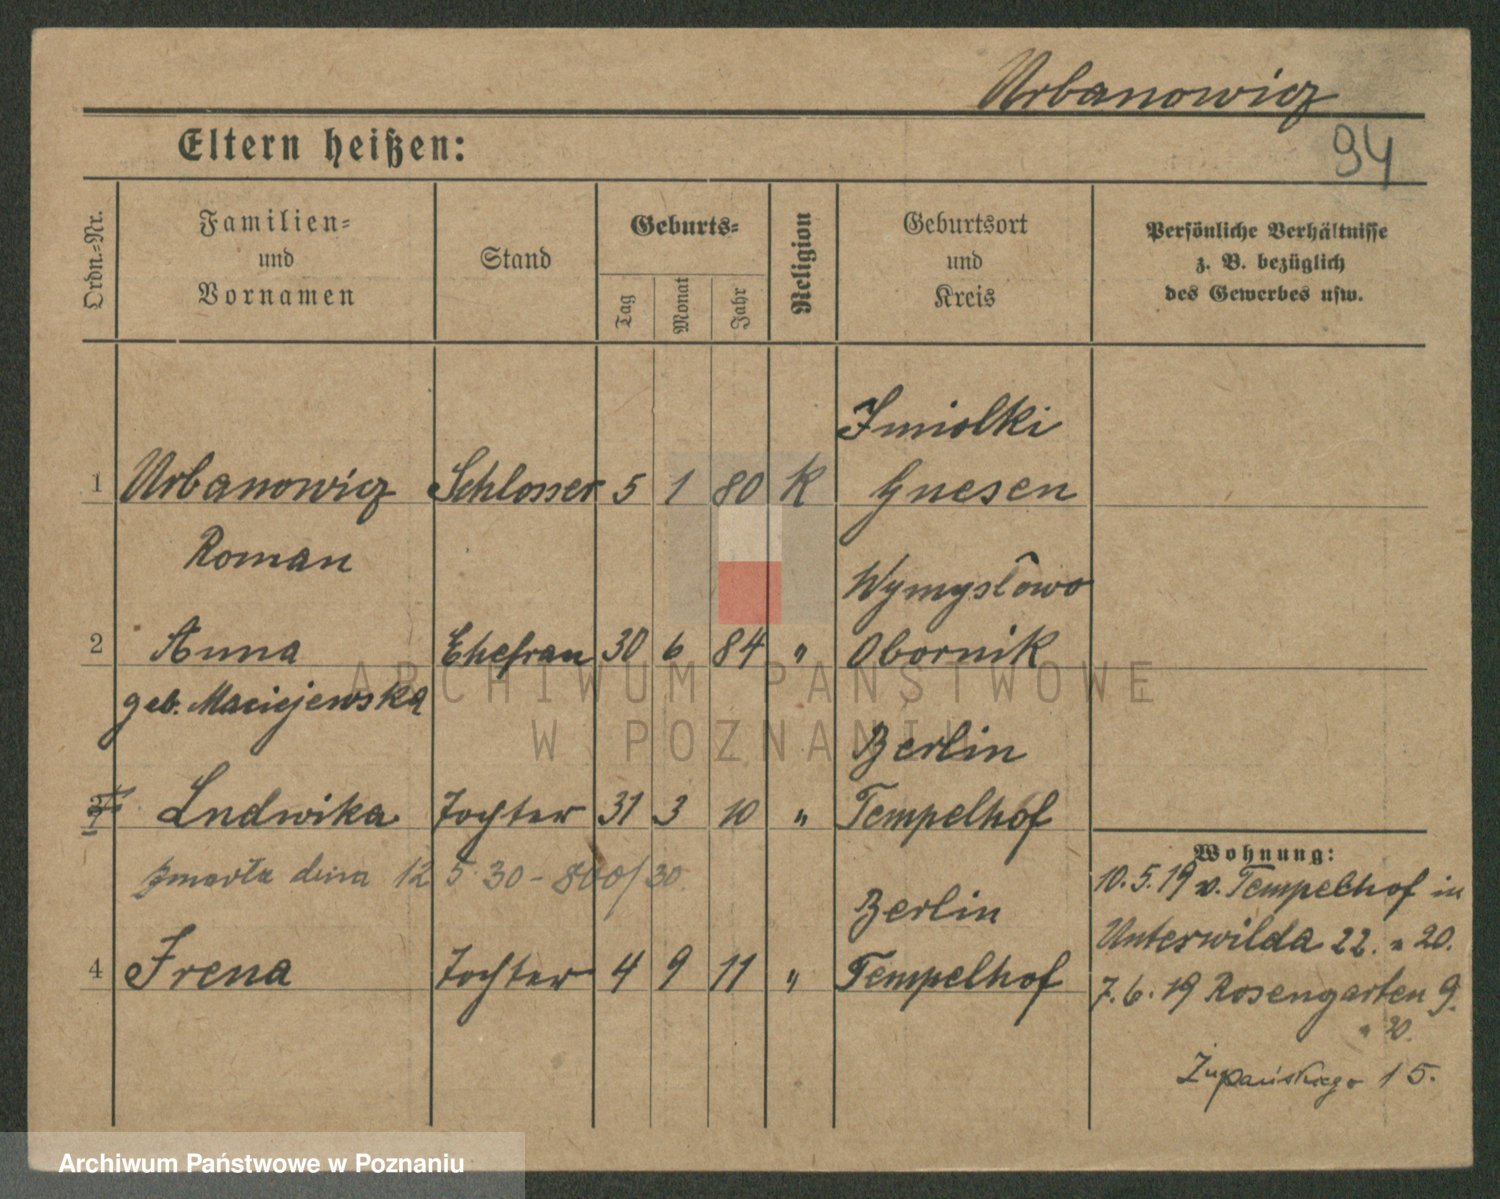 Urbanowicz
94
Eltern heißen:
Ordn.-Nr.
Familien-
und
Vornamen
Stand
Geburts-
Tag
Monat
Jahr
Religion
Geburtsort
und
Kreis
Persönliche Verhältnisse
z. B. bezüglich
des Gewerbes usw.
Imiolki
1 Urbanowicz Schlosser 5 1 80 K Gnesen
Roman
Wymysłowo
2 Anna Ehefrau 30 6 84 " Obornik
geb. Maciejewska
Berlin
3 Ludwika Tochter 31 3 10 " Tempelhof
zmarła dnia 12 5 30 - 800/30
Berlin
4 Irena Tochter 4 9 11 " Tempelhof
Wohnung:
10.5.19 v. Tempelhof in
Unterwilda 22. " 20.
7.6.19 Rosengarten 9.
" 20.
Żupańskiego 15.
ARCHIWUM PAŃSTWOWE
W POZNANIU
Archiwum Państwowe w Poznaniu